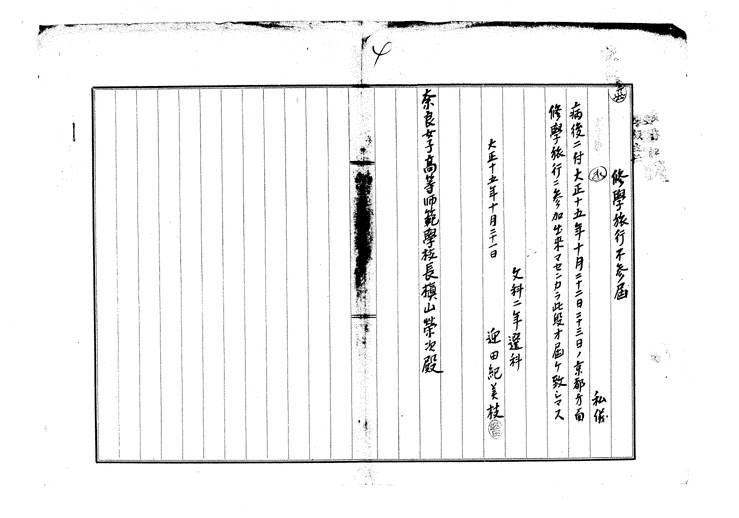 4
修學旅行不参届
私儀
病後ニ付大正十五年十月二十二日二十三日ノ京都方面
修學旅行ニ参加出来マセンカラ此段オ届ケ致シマス
大正十五年十月二十一日
文科二年選科
迎田紀美枝
奈良女子高等師範學校長槇山榮次殿